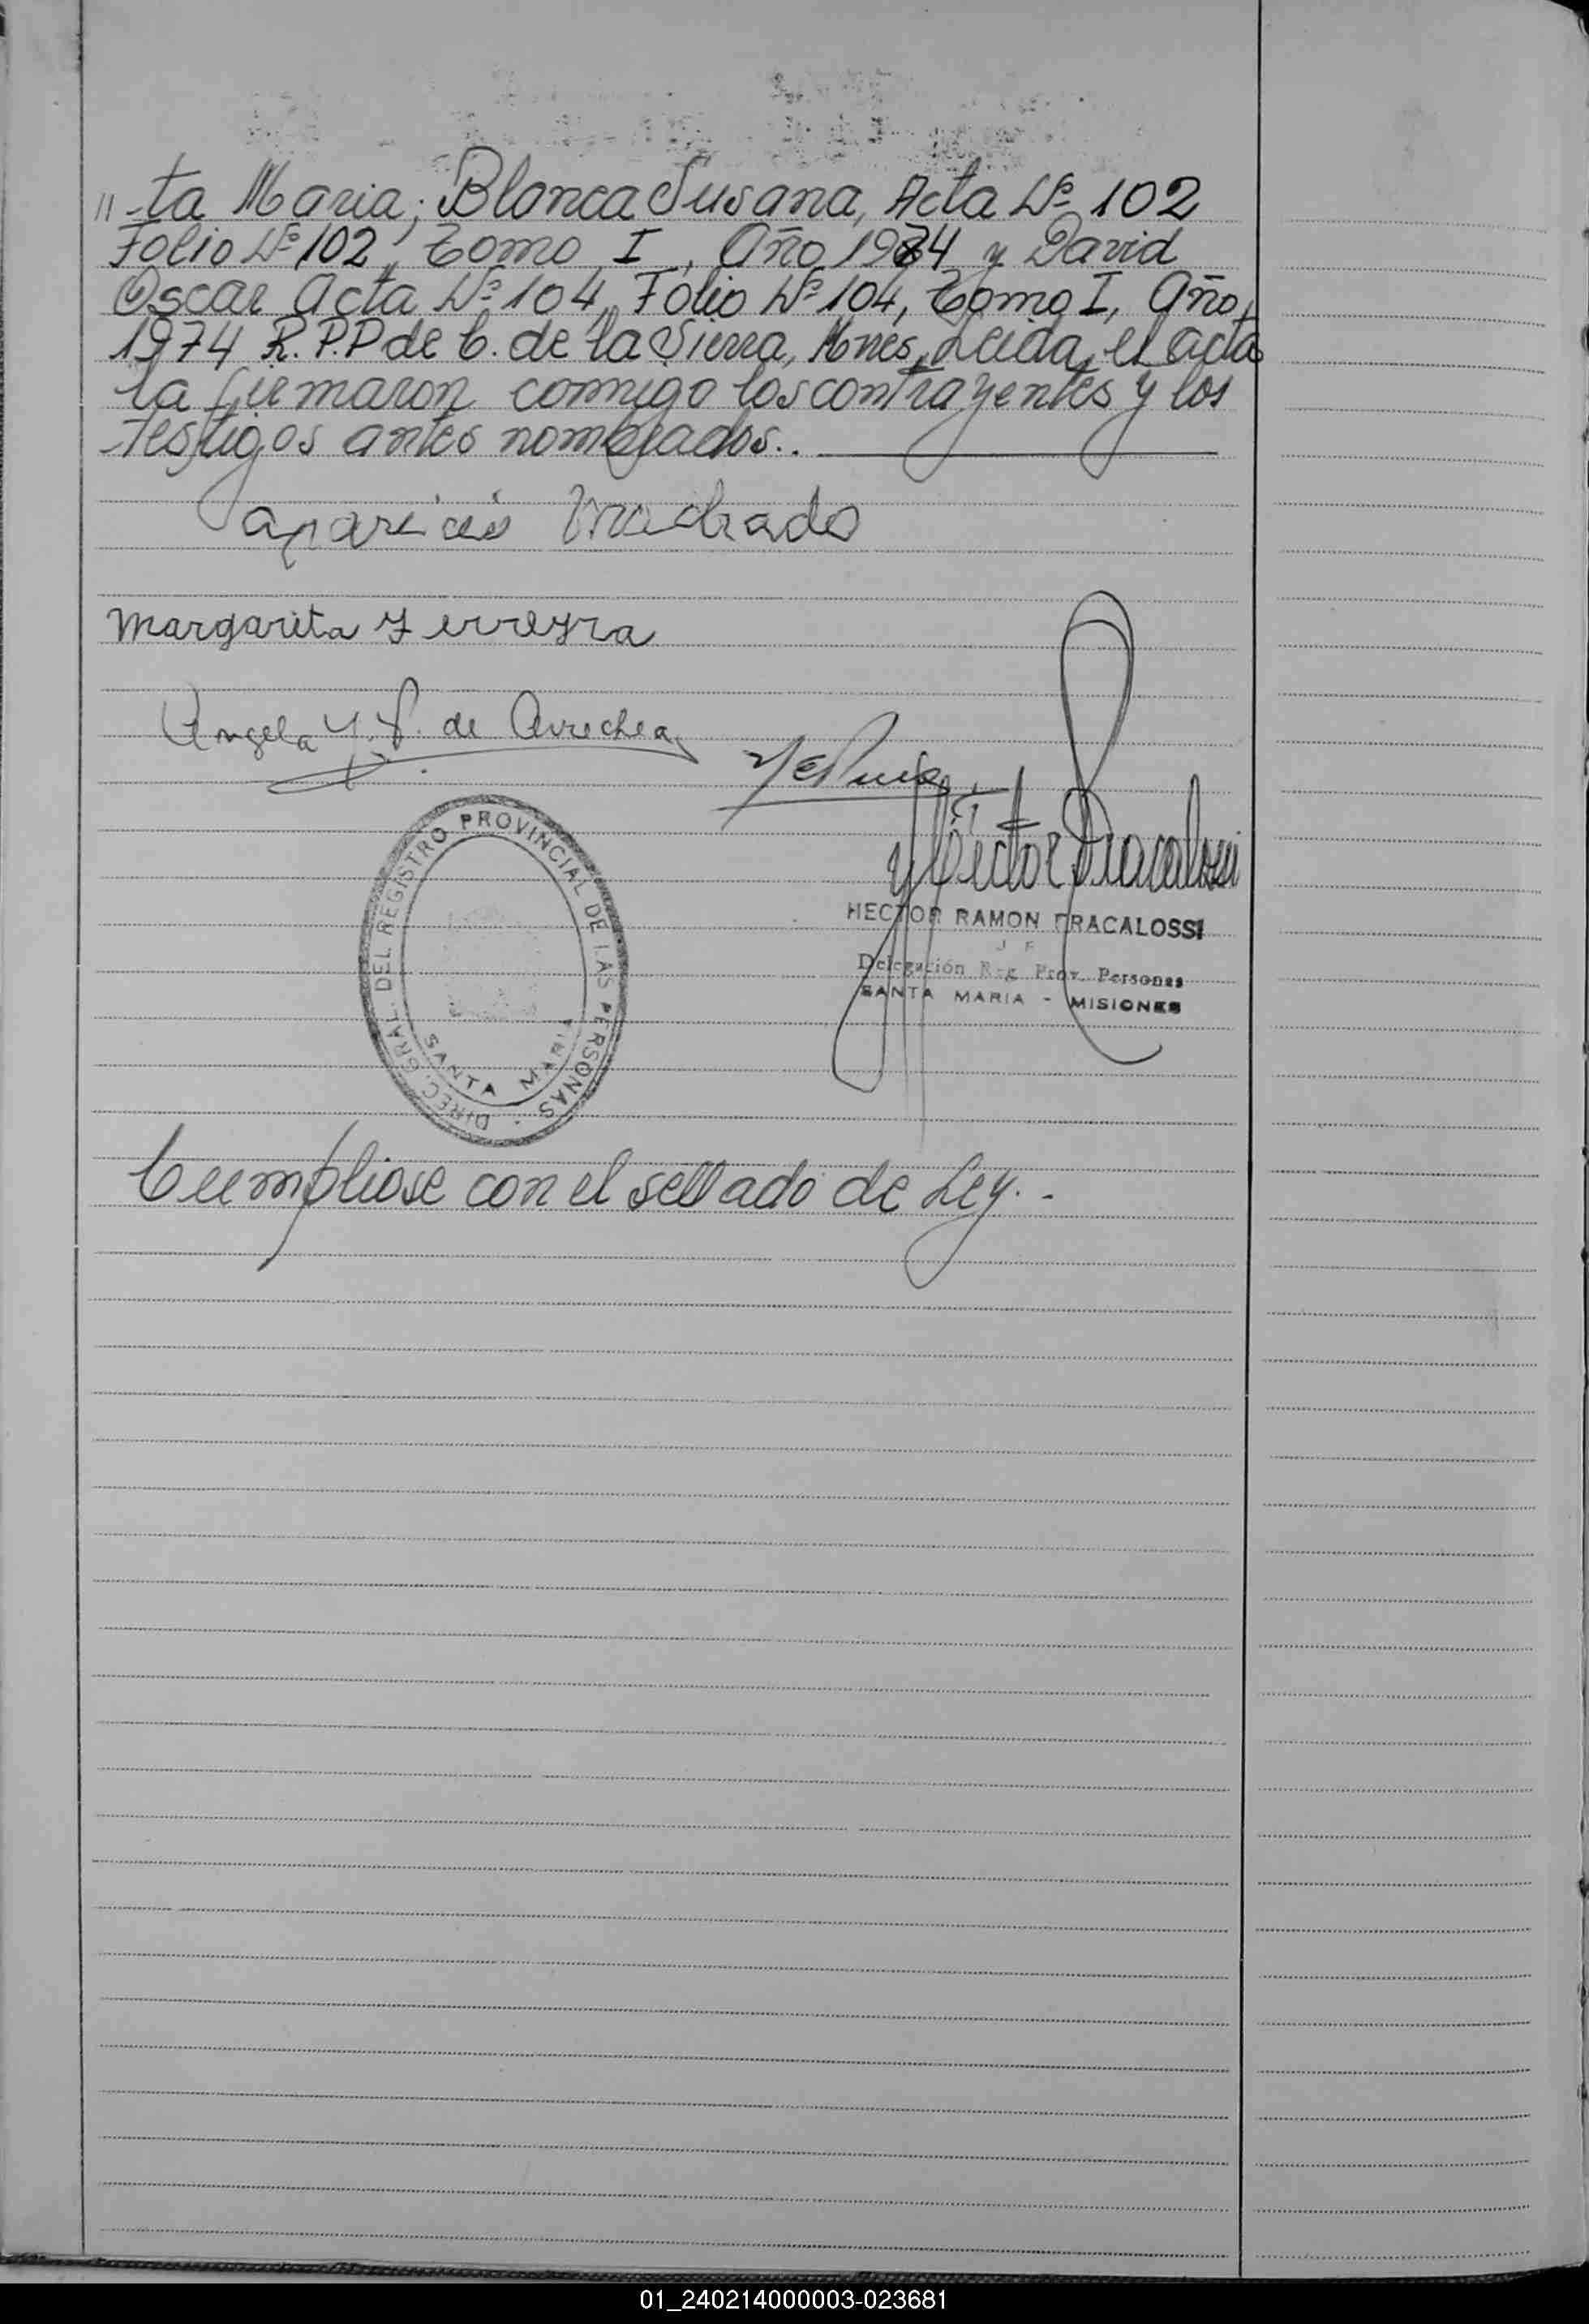 "-ta Maria; Blanca Susana, Acta Nº 102
Folio Nº 102, Tomo I, Año 1974 y David
Oscar Acta Nº 104, Folio Nº 104, Tomo I, Año,
1974 R.P.P de C. de la Sierra, Mnes, Leida, el acta
la firmaron conmigo los contrayentes y los
testigos antes nombrados..
aparicio Machado
Margarita Ferreyra
Angela Y. F. de Arrechea
Héctor Fracalossi
HECTOR RAMON FRACALOSSI
J F
Delegación Reg Prov. Personas
SANTA MARIA - MISIONES
DIREC. GRAL. DEL REGISTRO PROVINCIAL DE LAS PERSONAS
SANTA MARIA
Cumpliose con el sellado de Ley.-
01_240214000003-023681